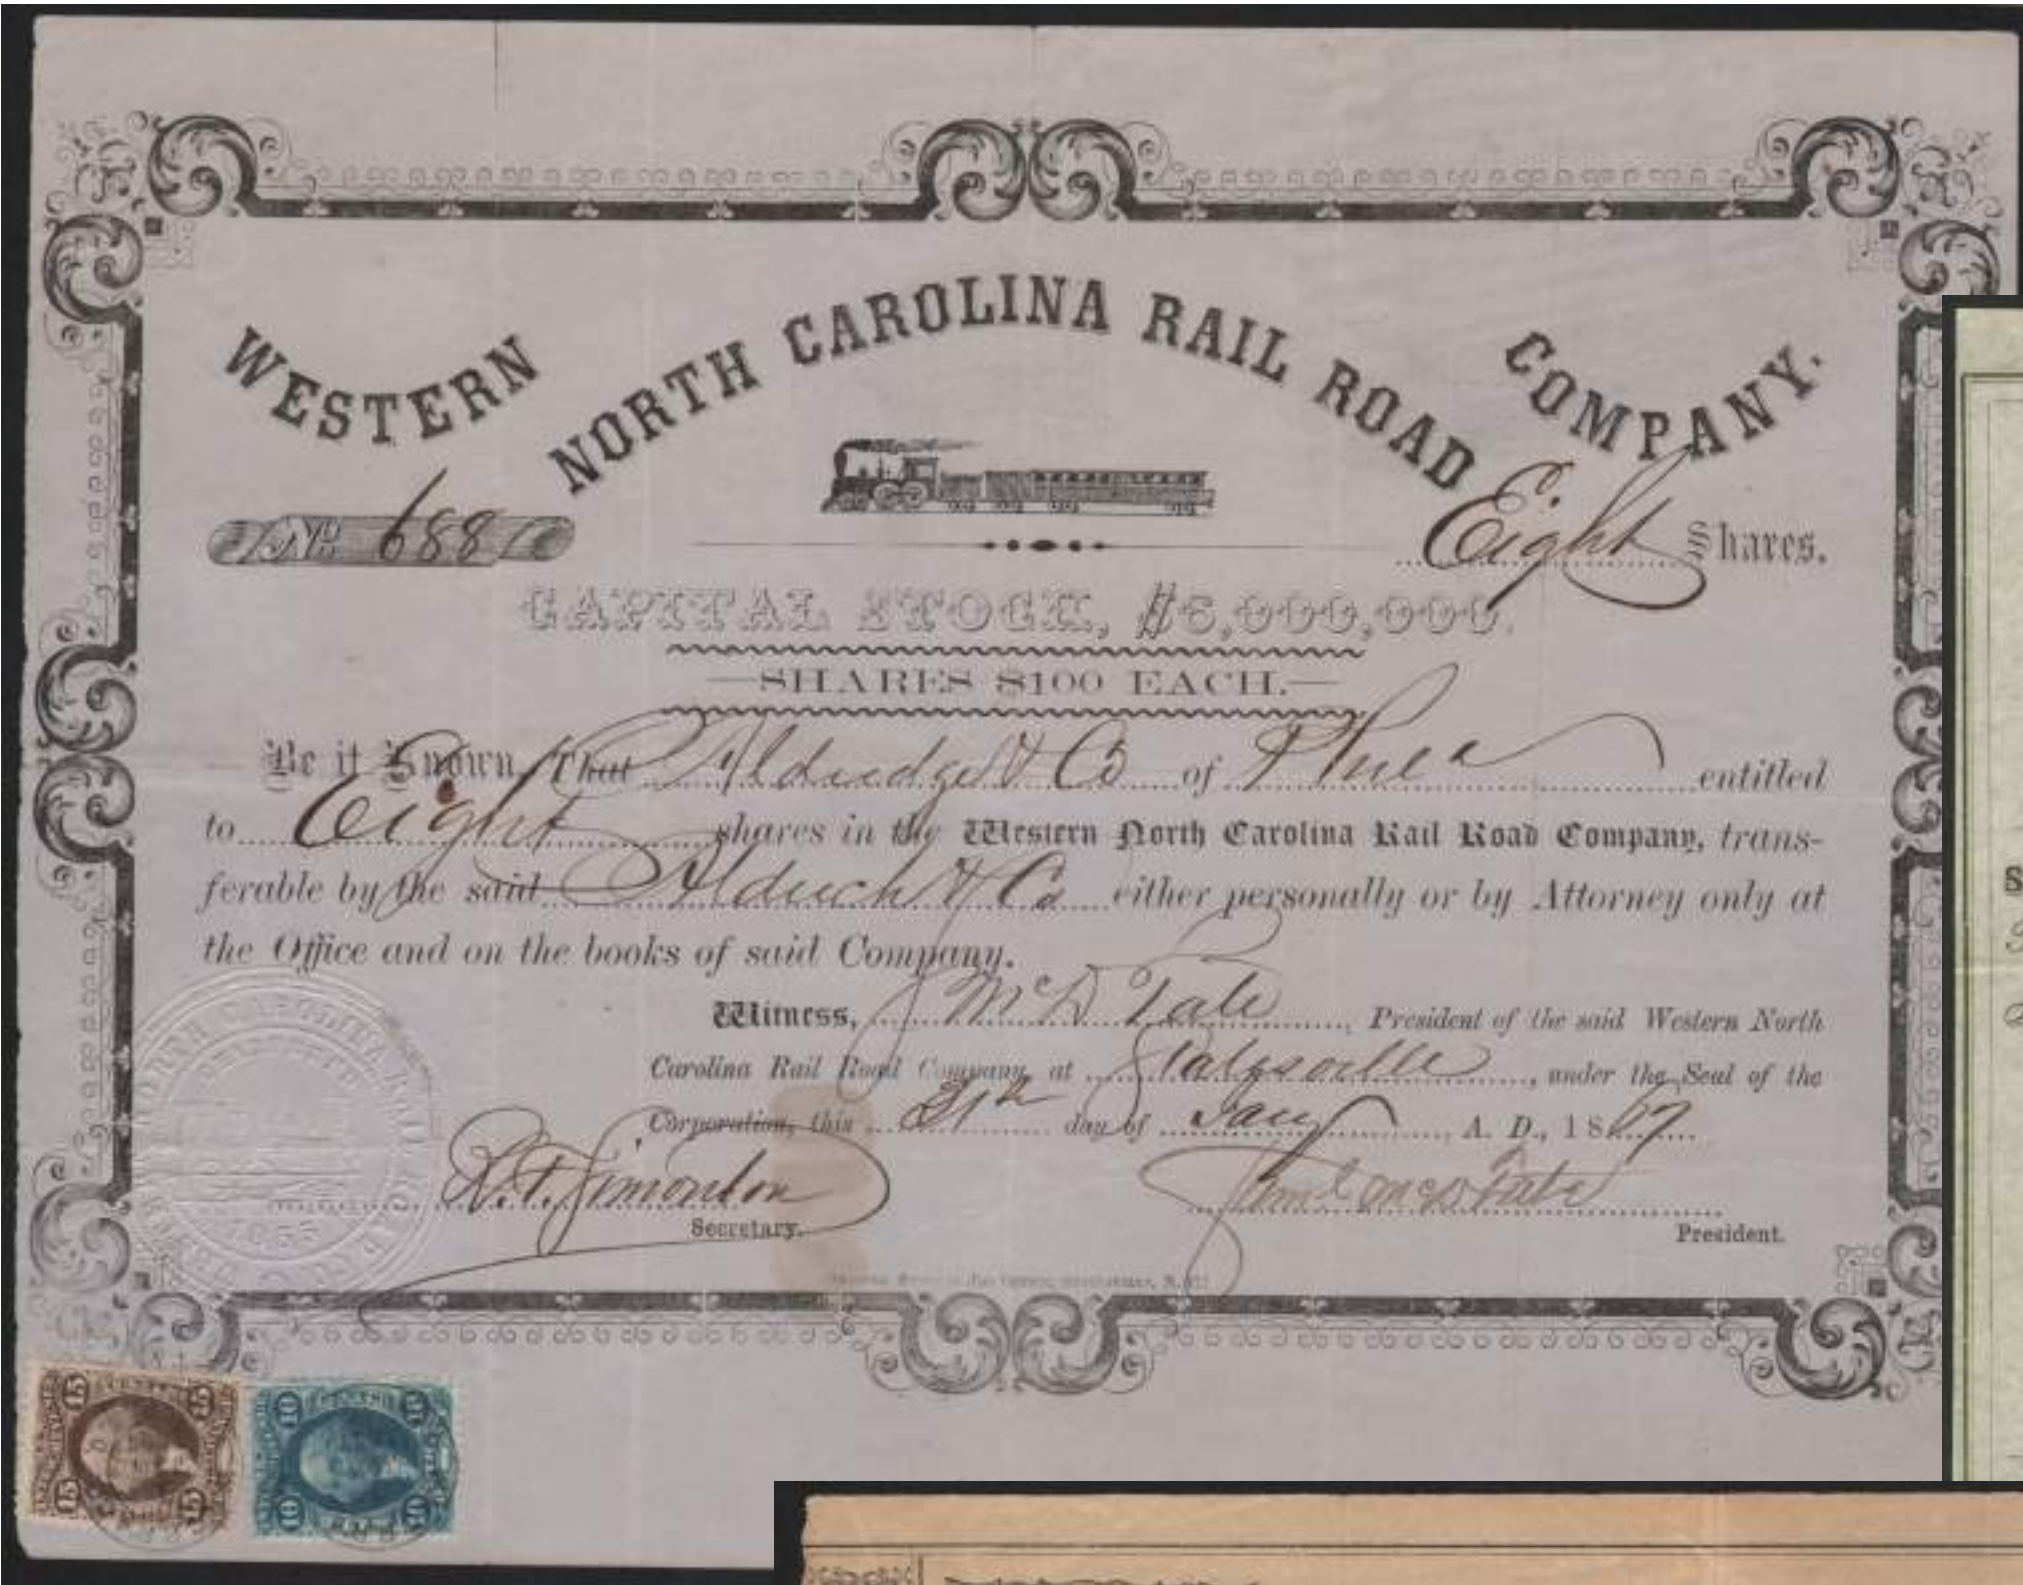 WESTERN NORTH CAROLINA RAIL ROAD COMPANY.
No. 688
Eight Shares.
CAPITAL STOCK, $6,000,000.
SHARES $100 EACH.
Be it Known, That Aldredge & Co of Phila entitled
to Eight shares in the Western North Carolina Rail Road Company, trans-
ferable by the said Aldrich & Co either personally or by Attorney only at
the Office and on the books of said Company.
Witness, McD Tate, President of the said Western North
Carolina Rail Road Company, at Statesville, under the Seal of the
Corporation, this 31st day of Jany A. D., 1867
R. F. Simonton
Secretary.
Saml McD Tate
President.
15 15
15 15
10 10
10 10